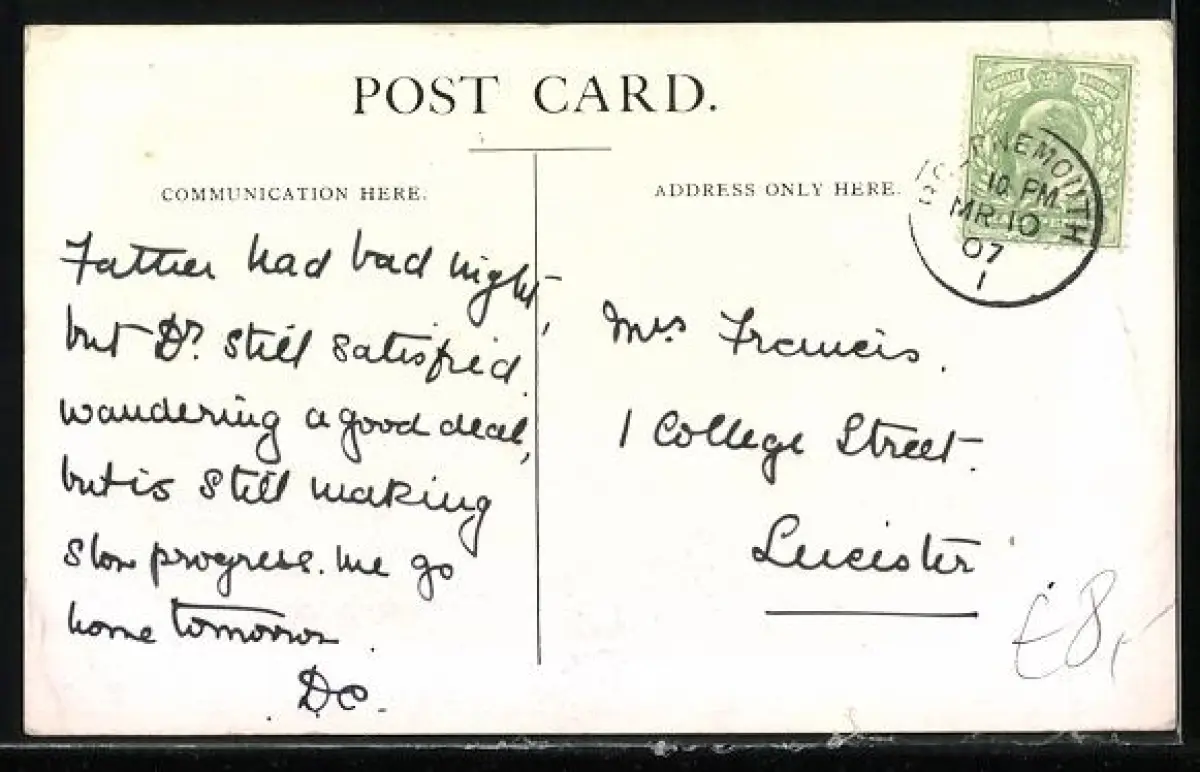 POST CARD.
COMMUNICATION HERE.
ADDRESS ONLY HERE.
Father had bad night,
but Dr. still satisfied.
wandering a good deal,
but is still making
slow progress. We go
home tomorrow.
DC.
BOURNEMOUTH
10. PM
MR 10
07
1
Mrs Francis.
1 College Street.
Leicester
£8,-